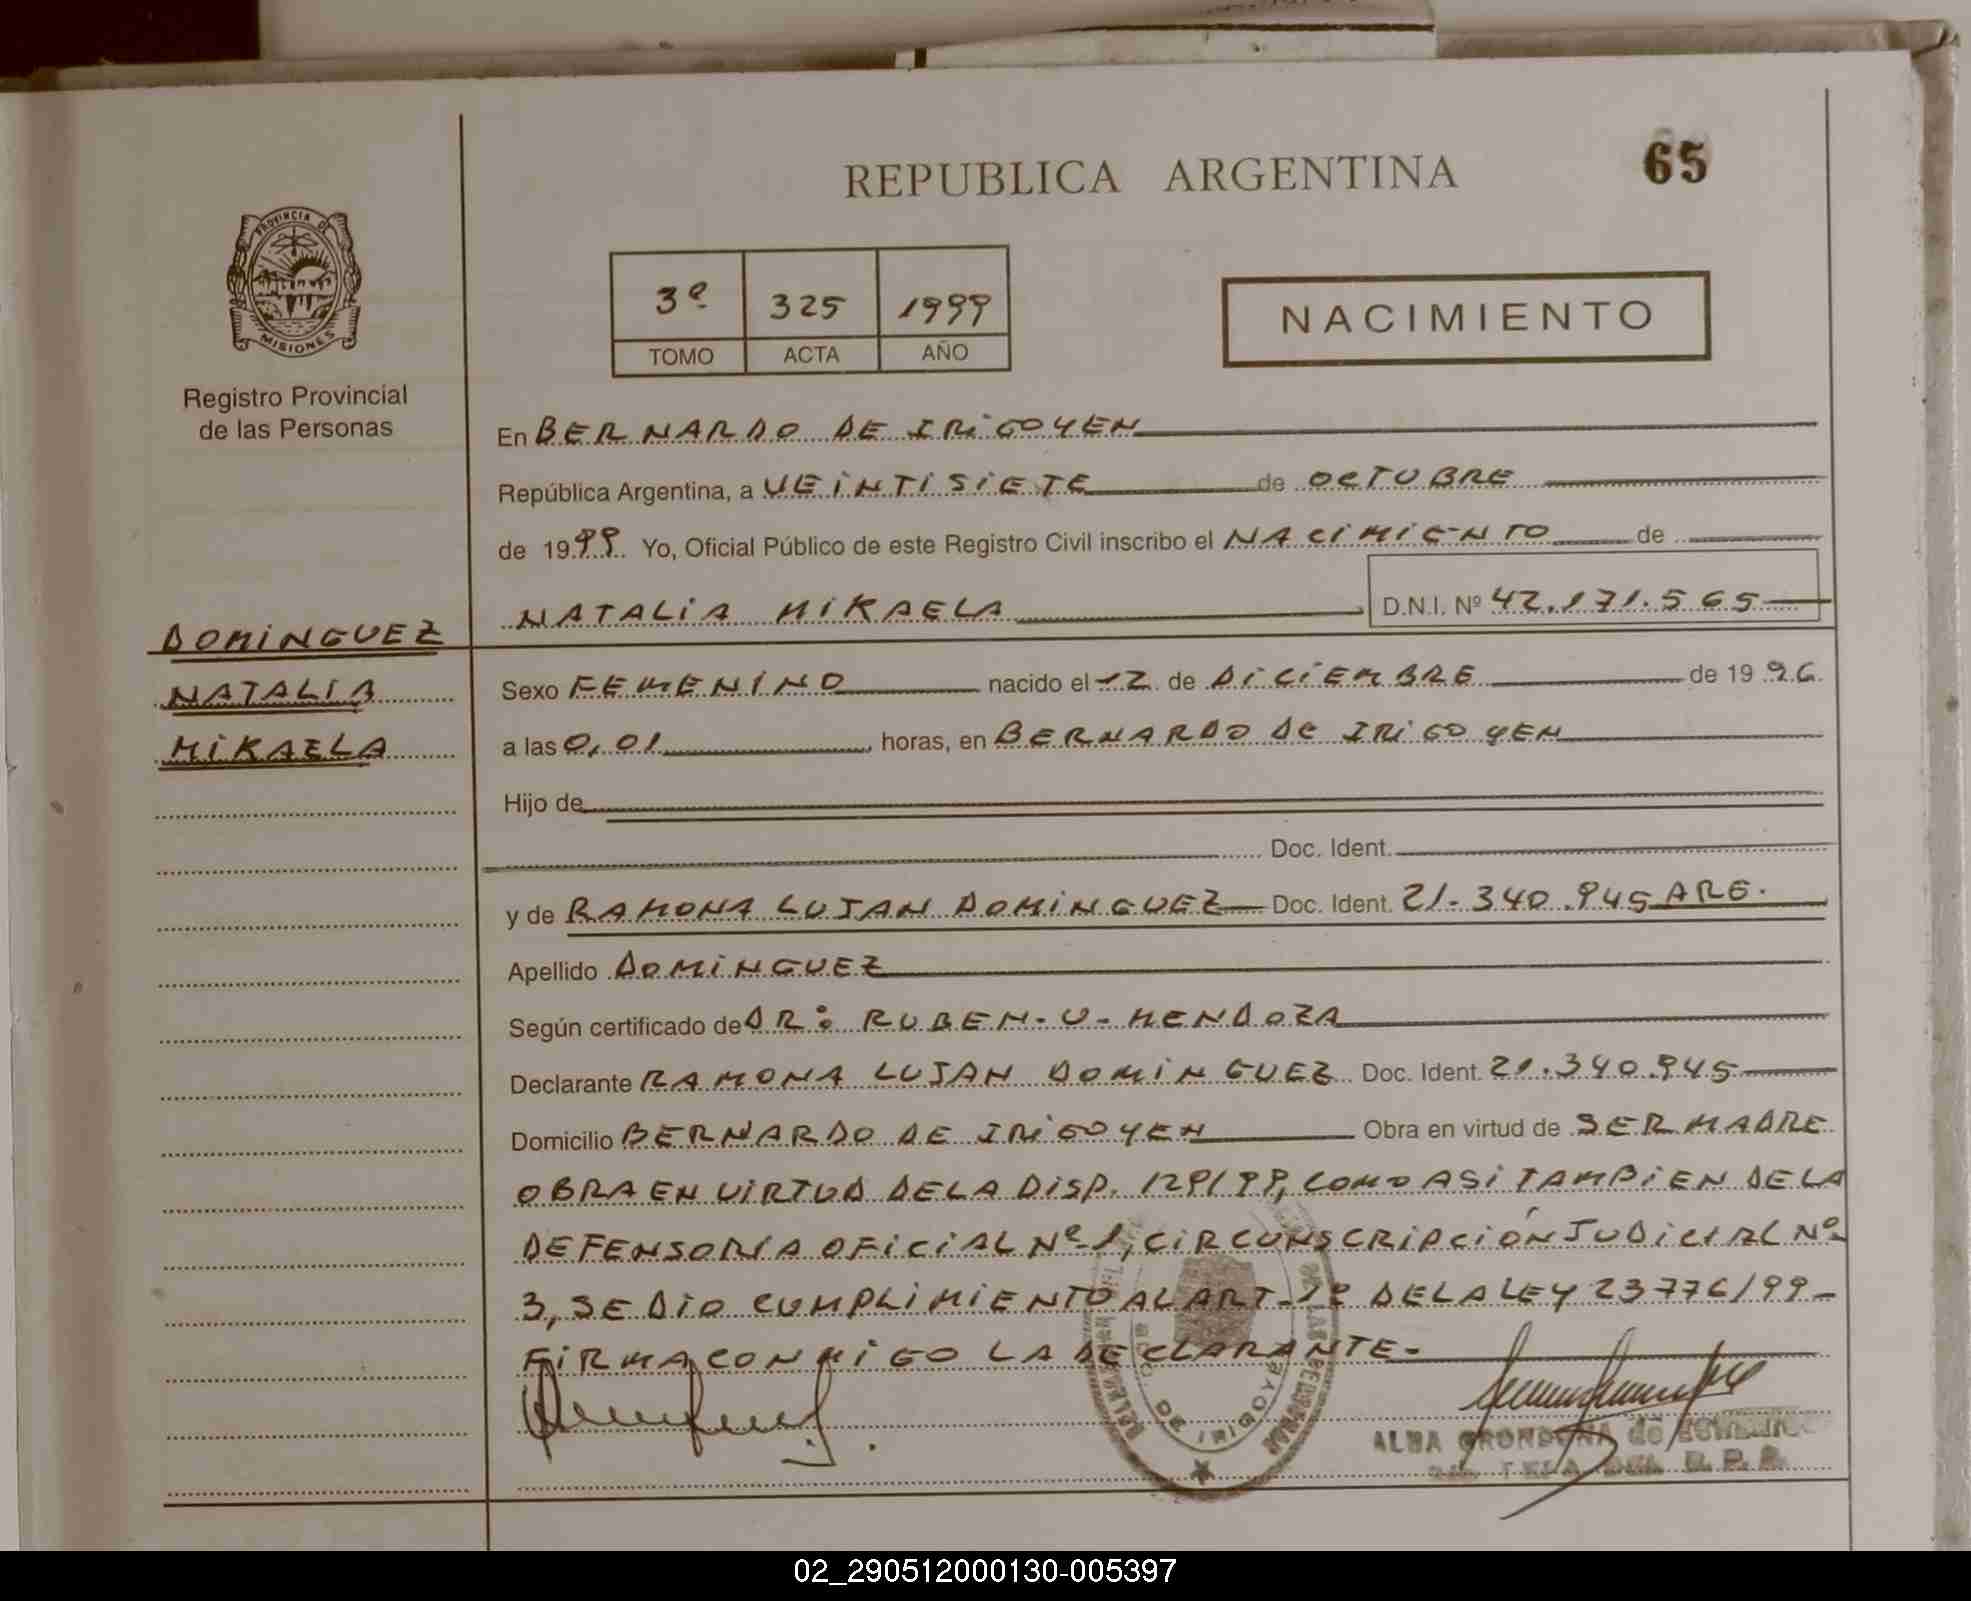 REPUBLICA ARGENTINA
65
PROVINCIA DE
MISIONES
Registro Provincial
de las Personas
3º 325 1999
TOMO ACTA AÑO
NACIMIENTO
En BERNARDO DE IRIGOYEN
República Argentina, a VEINTISIETE de OCTUBRE
de 1999 Yo, Oficial Público de este Registro Civil inscribo el NACIMIENTO de
NATALIA MIKAELA D.N.I. Nº 42.171.565
DOMINGUEZ
NATALIA
MIKAELA
Sexo FEMENINO nacido el 12 de DICIEMBRE de 1996
a las 0,01, horas, en BERNARDO DE IRIGOYEN
Hijo de
Doc. Ident.
y de RAMONA LUJAN DOMINGUEZ Doc. Ident. 21.340.945 ARG.
Apellido DOMINGUEZ
Según certificado de DR: RUBEN-U-MENDOZA
Declarante RAMONA LUJAN DOMINGUEZ Doc. Ident. 21.340.945
Domicilio BERNARDO DE IRIGOYEN Obra en virtud de SER MADRE
OBRA EN VIRTUD DE LA DISP. 129/99, COMO ASI TAMBIEN DE LA
DEFENSORIA OFICIAL Nº 1, CIRCUNSCRIPCIÓN JUDICIAL Nº
3, SE DIO CUMPLIMIENTO AL ART-1º DE LA LEY 23776/99-
FIRMA CONMIGO LA DECLARANTE-
DE IRIGOYE
ALBA de
R. P. P.
02_290512000130-005397